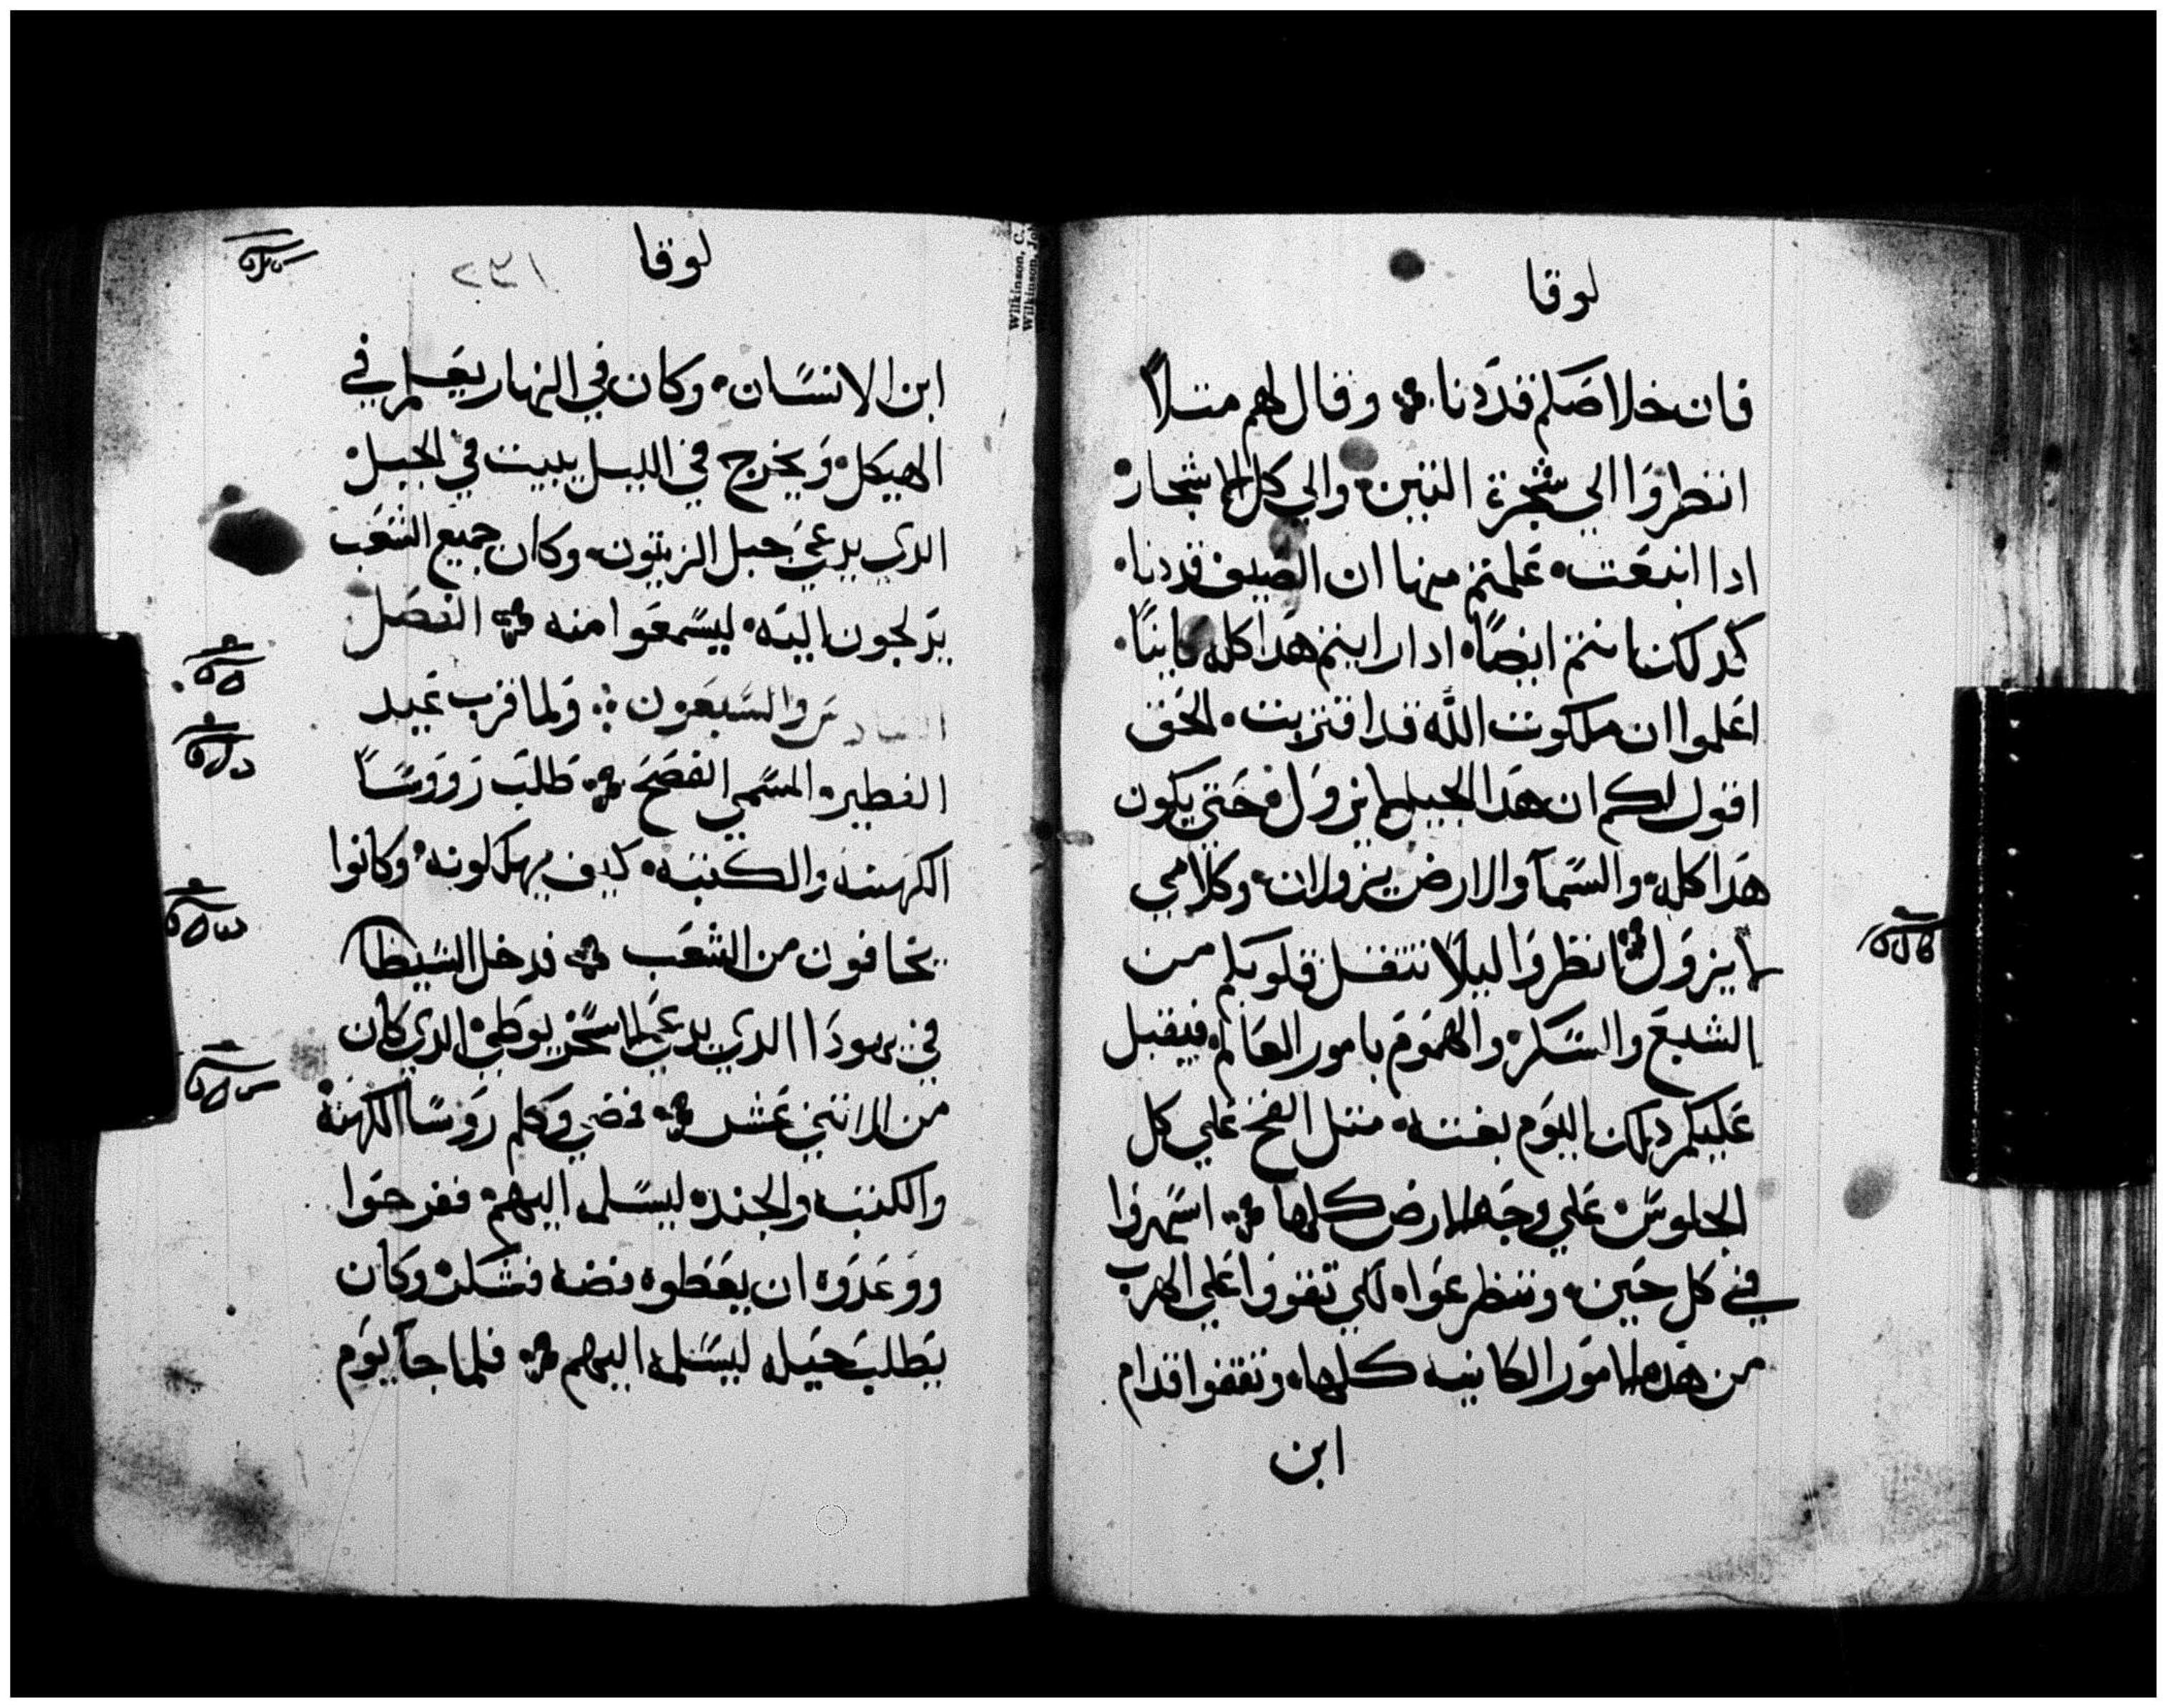 لوقا
فان خلاصكم قد دنا ۞ وقال لهم متلاً
انظروا الي شجرة التين والي كل الاشجار
ادا ابنعت علمتم منها ان الصيف قد دنا
كدلك انتم ايضاً ادا رايتم هدا كله كاينًا
اعلموا ان ملكوت الله قد اقتربت الحق
اقول لكم ان هدا الجيل لا يزول حتي يكون
هدا كله والسمآ والارض يزولان وكلامي
لا يزول ۞ انظروا ليلا تتقل قلوبكم من
الشبع والسكر والهموم بامور العالم فيقبل
عليكم دلك اليوم بغته متل الفخ علي كل
الجلوس علي وجه الارض كلها ۞ اسهروا
في كل حين وتضرعوا لكي تقووا علي الهرب
من هده الامور الكاينه كلها وتقفوا قدام
ابن
لوقا
١٣٢
ابن الانسان وكان في النهار يعلم في
الهيكل ويخرج في الليل يبيت في الجبل
الدي يدعي جبل الزيتون وكان جميع الشعب
يدلجون اليه ليسمعوا منه ۞ الفصل
السادس والسبعون ۞ ولما قرب عيد
الفطير المسمي الفصح ۞ طلب رووسا
الكهنه والكتبه كيف يهلكونه وكانوا
يخافون من الشعب ۞ فدخل الشيطان
في يهودا الدي يدعي الاسخريوطي الدي كان
من الاتني عشر ۞ فمضي وكلم روسا الكهنه
والكتبه والجند ليسلمه اليهم ففرحوا
ووعدوه ان يعطوه فضه فشكر وكان
يطلب حيله ليسلمه اليهم ۞ فلما جا يوم
Wilkinson, C.
Wilkinson, Jo